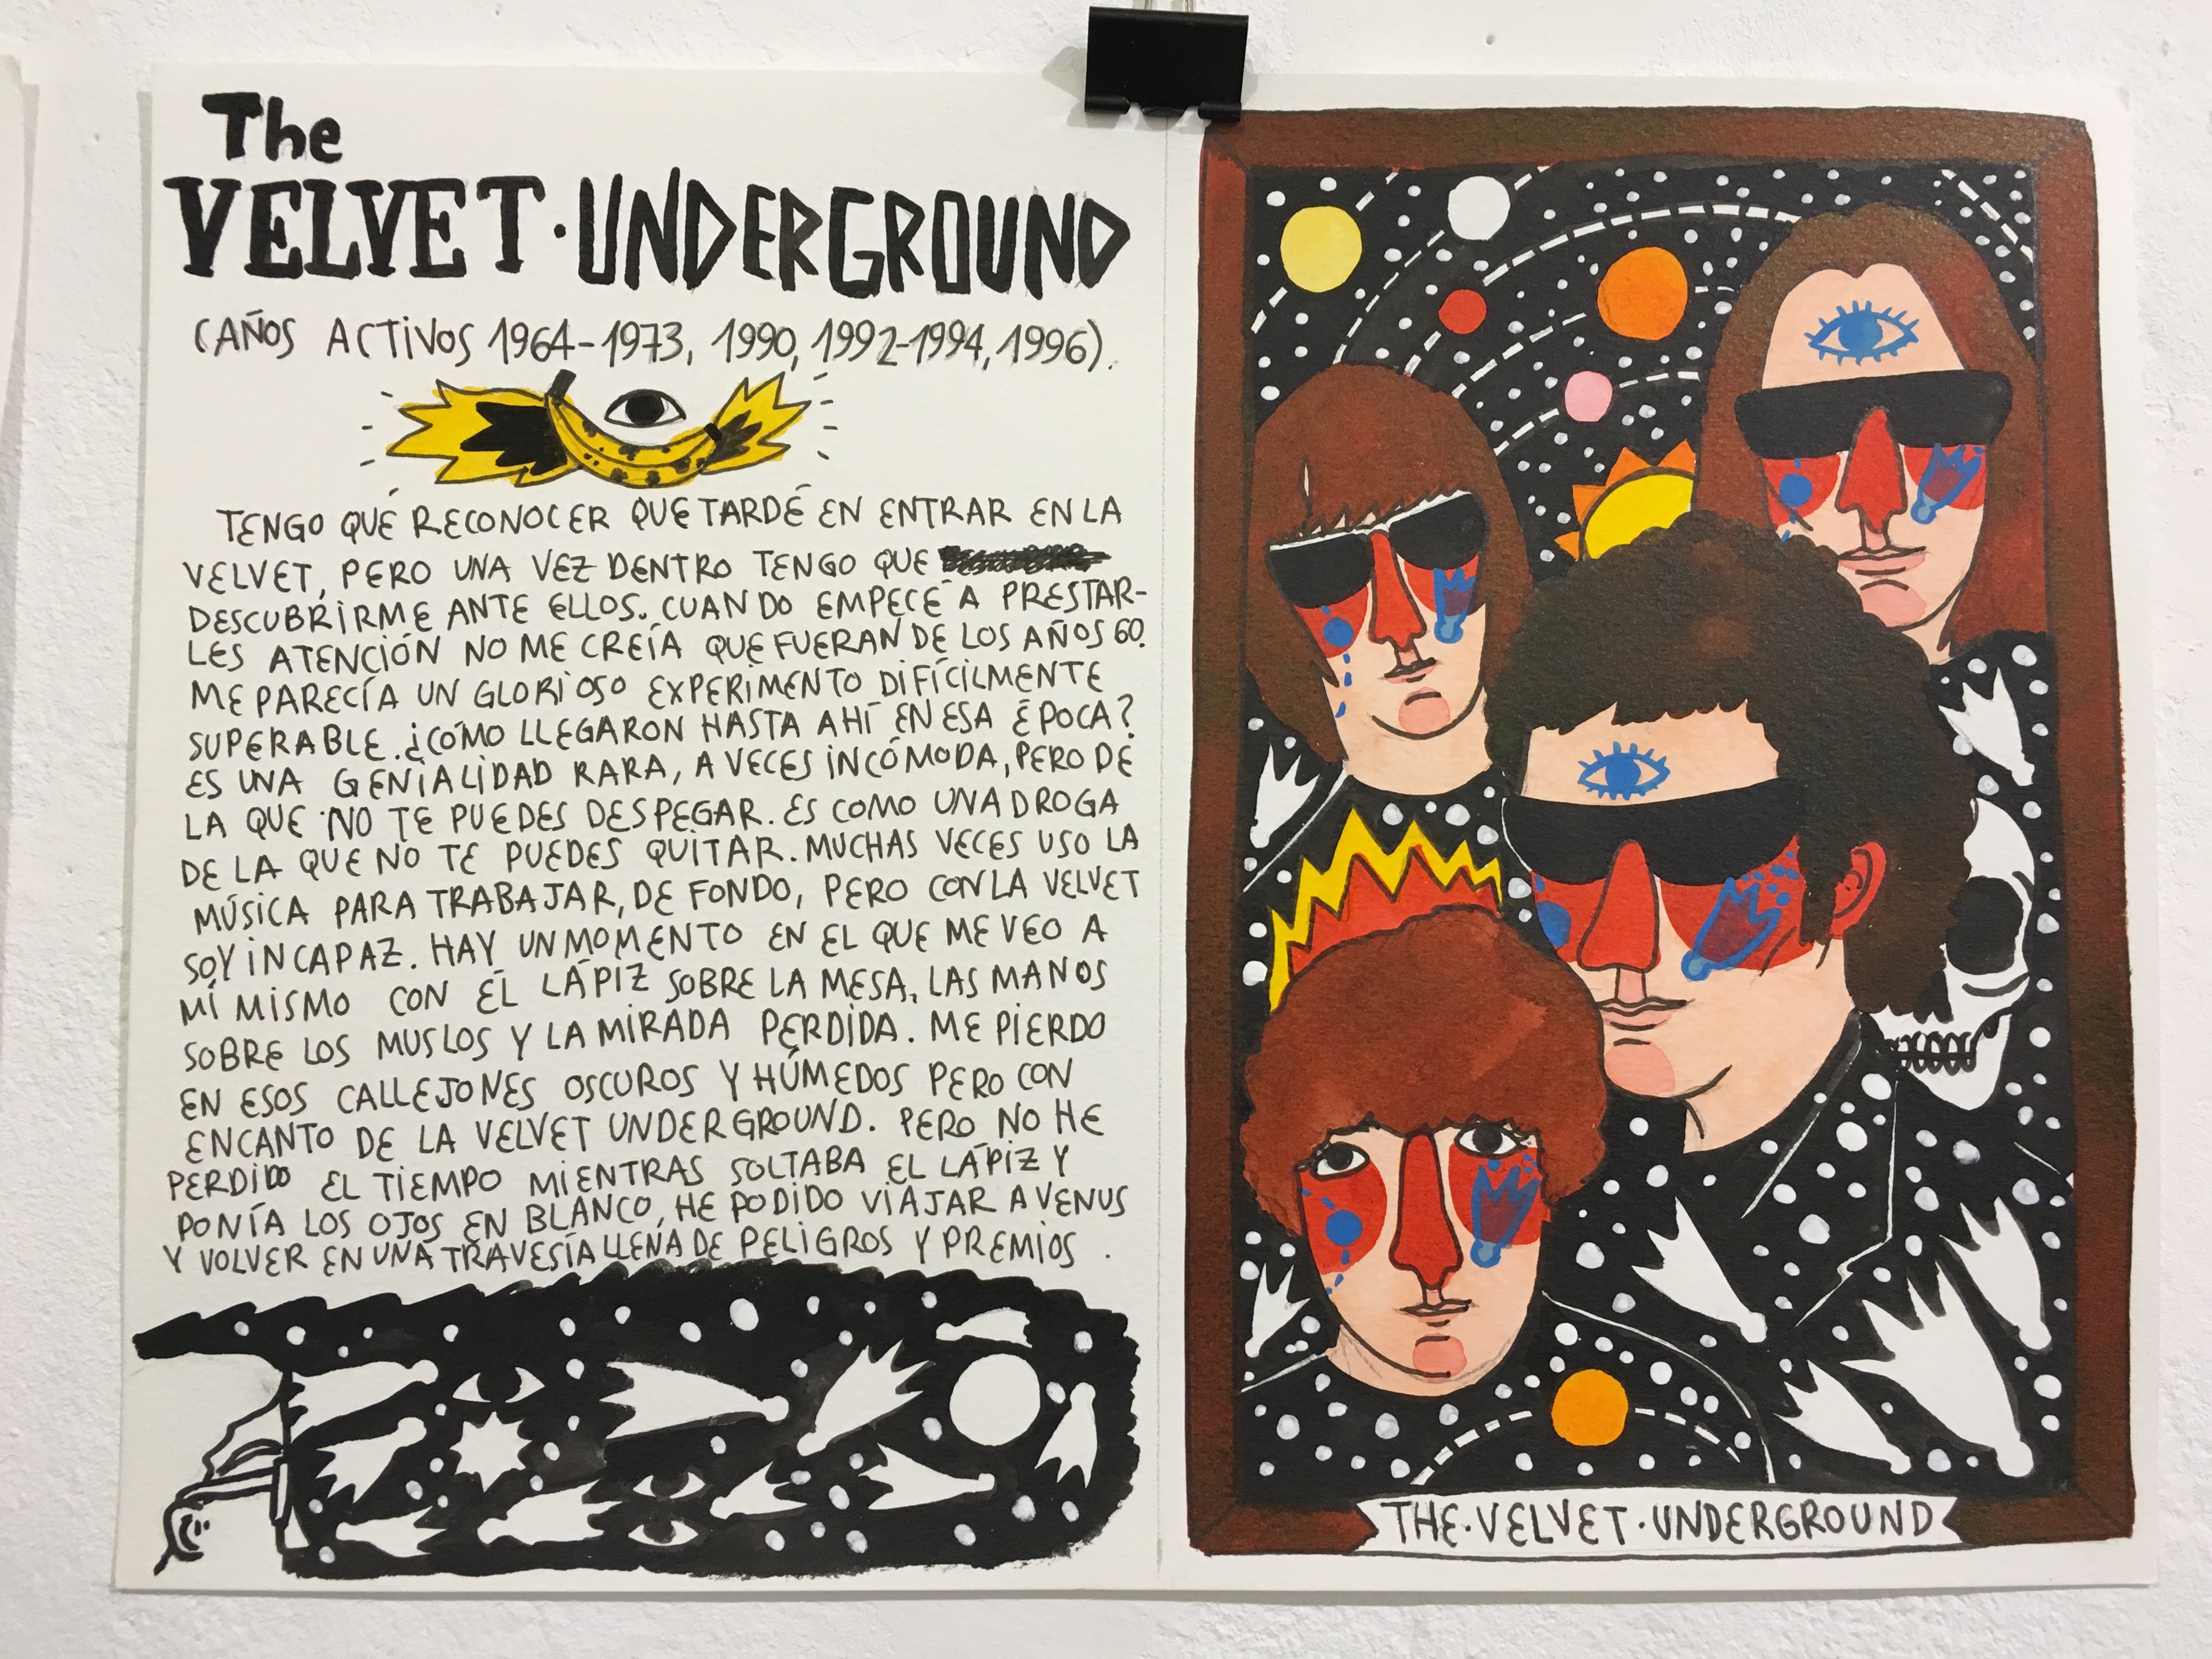 The
VELVET · UNDERGROUND
(AÑOS ACTIVOS 1964-1973, 1990, 1992-1994, 1996).
TENGO QUE RECONOCER QUE TARDÉ EN ENTRAR EN LA
VELVET, PERO UNA VEZ DENTRO TENGO QUE
DESCUBRIRME ANTE ELLOS. CUANDO EMPECÉ A PRESTAR-
LES ATENCIÓN NO ME CREÍA QUE FUERAN DE LOS AÑOS 60.
ME PARECÍA UN GLORIOSO EXPERIMENTO DIFÍCILMENTE
SUPERABLE. ¿CÓMO LLEGARON HASTA AHÍ EN ESA ÉPOCA?
ES UNA GENIALIDAD RARA, A VECES INCÓMODA, PERO DE
LA QUE NO TE PUEDES DESPEGAR. ES COMO UNA DROGA
DE LA QUE NO TE PUEDES QUITAR. MUCHAS VECES USO LA
MÚSICA PARA TRABAJAR, DE FONDO, PERO CON LA VELVET
SOY INCAPAZ. HAY UN MOMENTO EN EL QUE ME VEO A
MÍ MISMO CON EL LÁPIZ SOBRE LA MESA, LAS MANOS
SOBRE LOS MUSLOS Y LA MIRADA PERDIDA. ME PIERDO
EN ESOS CALLEJONES OSCUROS Y HÚMEDOS PERO CON
ENCANTO DE LA VELVET UNDERGROUND. PERO NO HE
PERDIDO EL TIEMPO MIENTRAS SOLTABA EL LÁPIZ Y
PONÍA LOS OJOS EN BLANCO, HE PODIDO VIAJAR A VENUS
Y VOLVER EN UNA TRAVESÍA LLENA DE PELIGROS Y PREMIOS.
THE · VELVET · UNDERGROUND